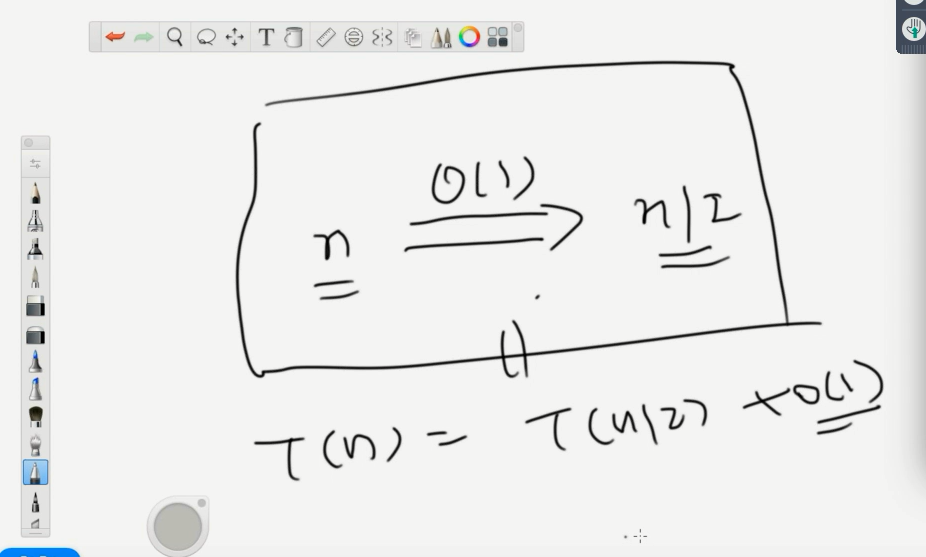 O(1)
n ⇒ n/2
T(n) = T(n/2) + O(1)
T